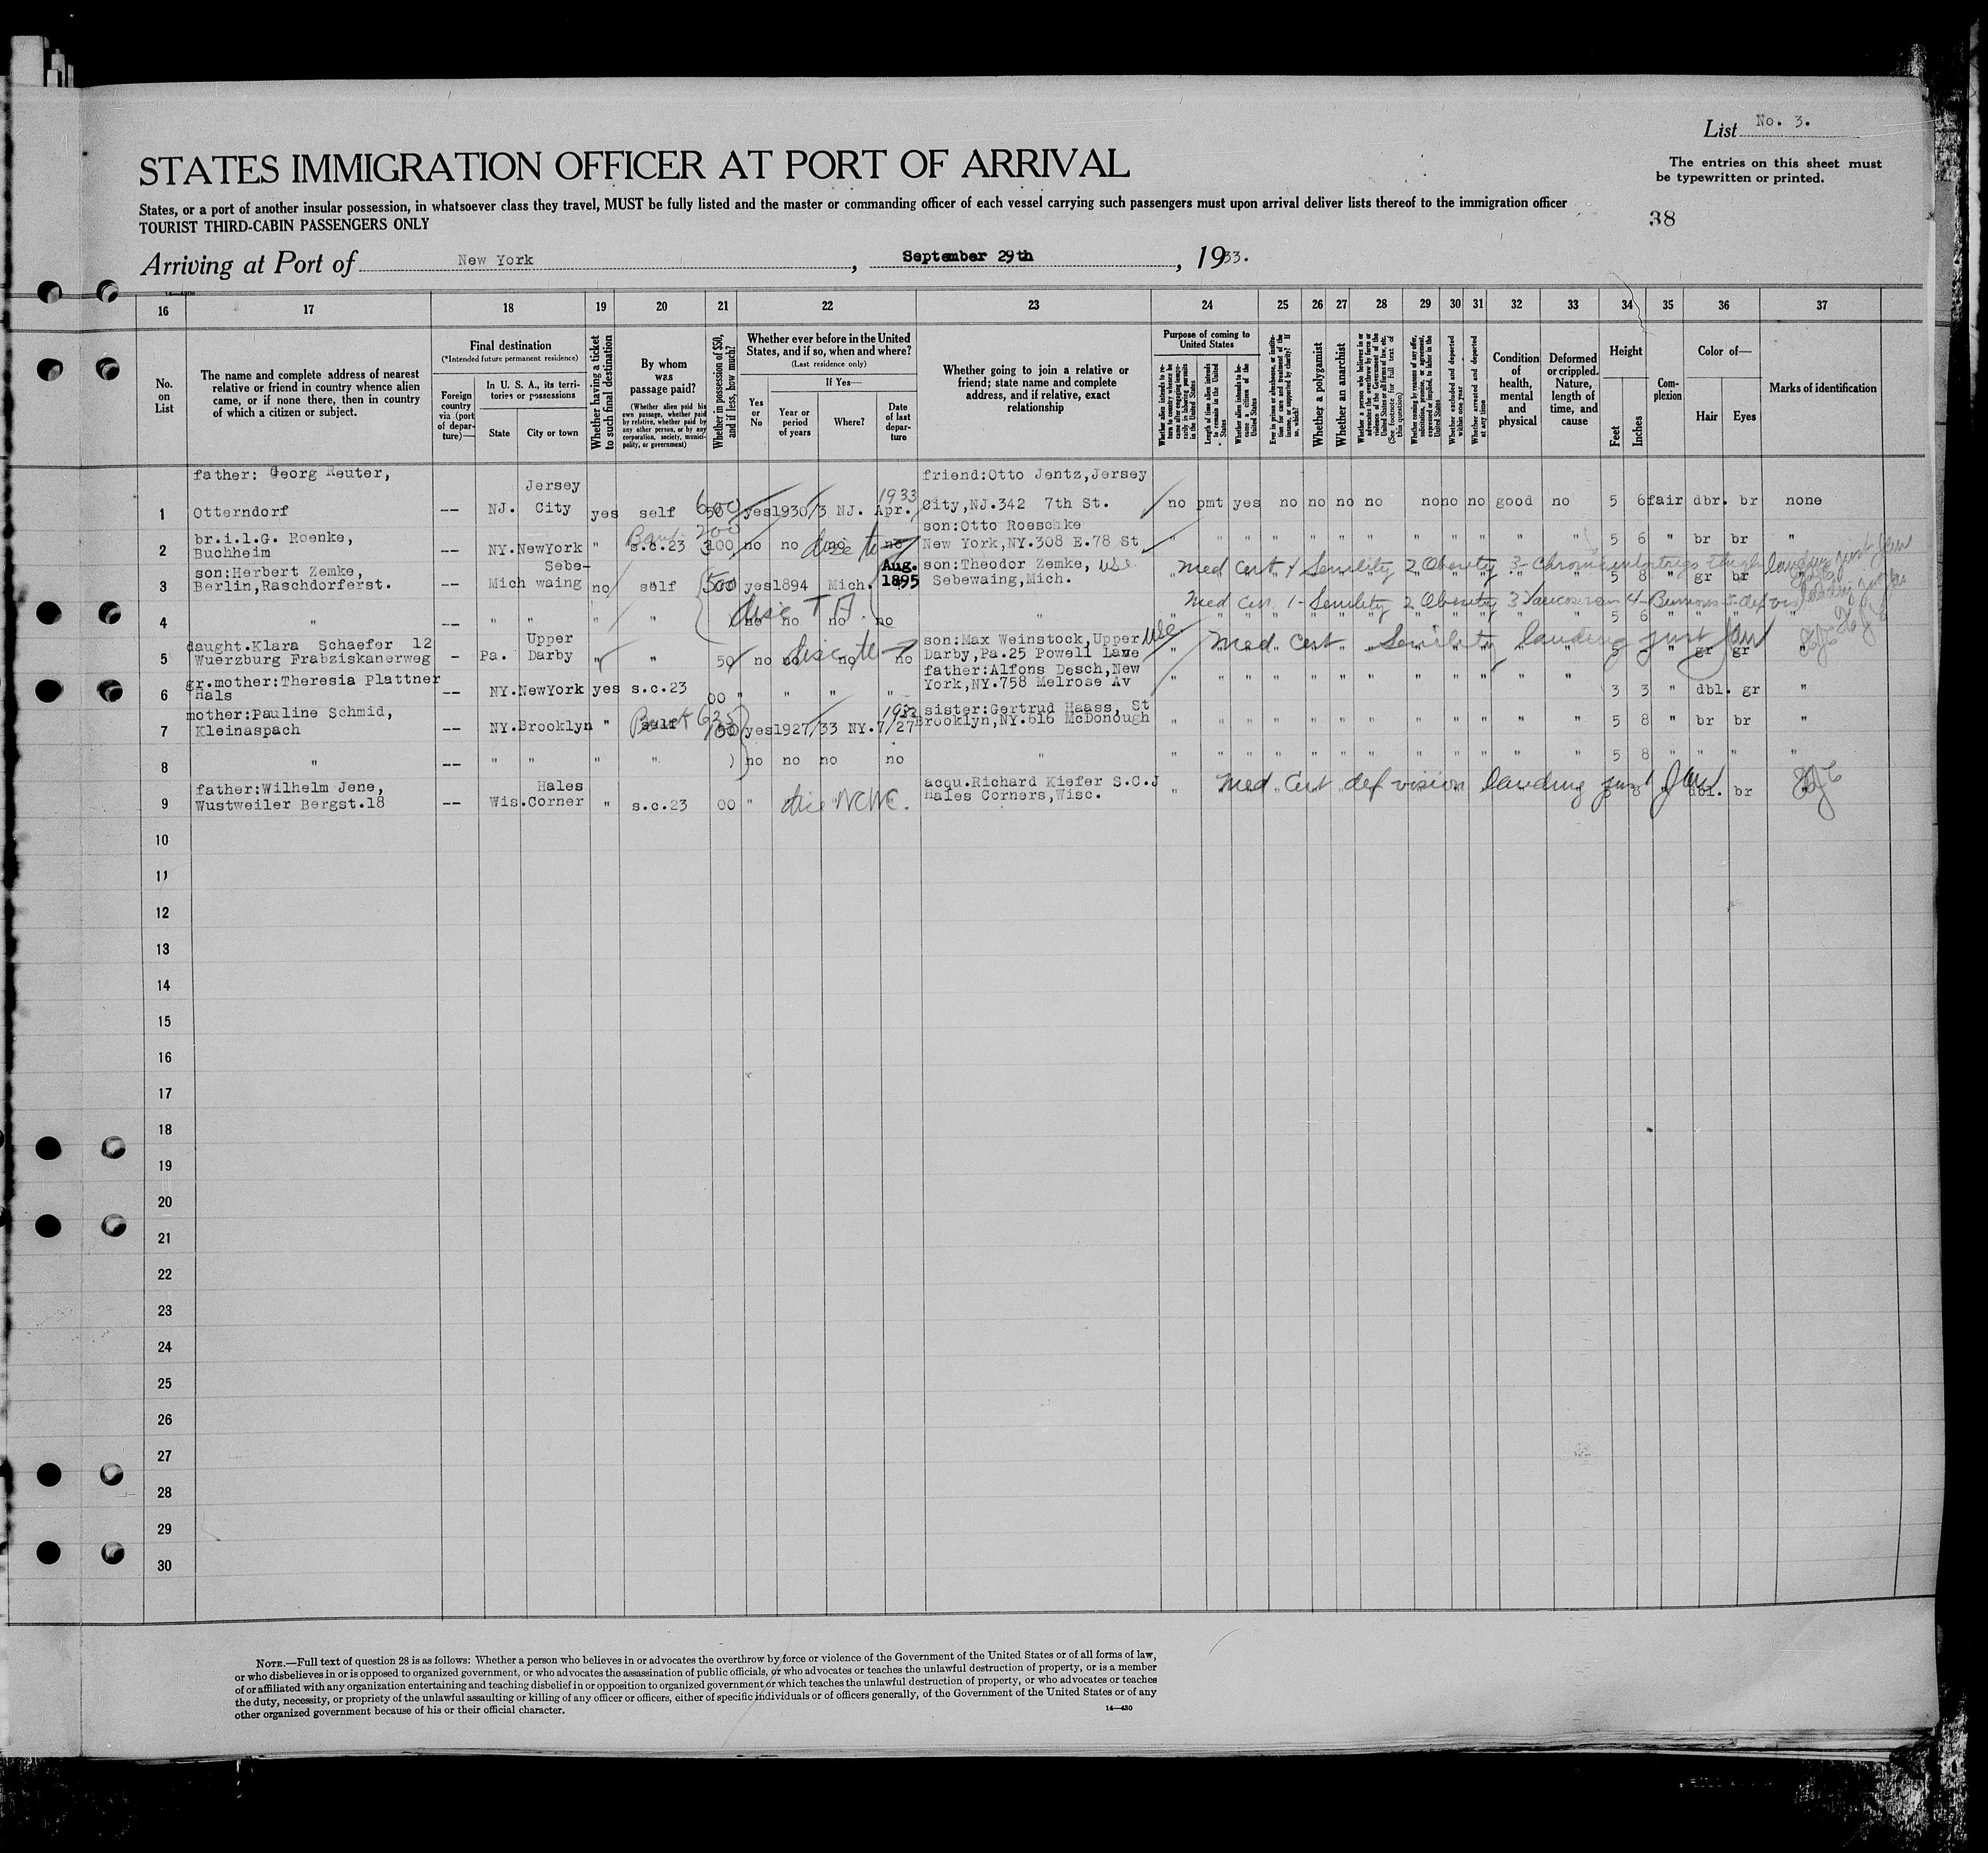 List No. 3.
STATES IMMIGRATION OFFICER AT PORT OF ARRIVAL
The entries on this sheet must
be typewritten or printed.
States, or a port of another insular possession, in whatsoever class they travel, MUST be fully listed and the master or commanding officer of each vessel carrying such passengers must upon arrival deliver lists thereof to the immigration officer
TOURIST THIRD-CABIN PASSENGERS ONLY
38
Arriving at Port of New York, September 29th, 1933.
16 17 18 19 20 21 22 23 24 25 26 27 28 29 30 31 32 33 34 35 36 37
No. on List
The name and complete address of nearest
relative or friend in country whence alien
came, or if none there, then in country
of which a citizen or subject.
Final destination
(*Intended future permanent residence)
Foreign country via (port of departure)—
In U. S. A., its territories or possessions
State
City or town
Whether having a ticket to such final destination
By whom was passage paid?
(Whether alien paid his own passage, whether paid by relative, whether paid by any other person, or by any corporation, society, municipality, or government)
Whether in possession of $50, and if less, how much?
Whether ever before in the United
States, and if so, when and where?
(Last residence only)
If Yes—
Yes or No
Year or period of years
Where?
Date of last departure
Whether going to join a relative or
friend; state name and complete
address, and if relative, exact
relationship
Purpose of coming to United States
Whether alien intends to return to country whence he came after engaging temporarily in laboring pursuits in the United States
Length of time alien intends to remain in the United States
Whether alien intends to become a citizen of the United States
Ever in prison or almshouse, or institution for care and treatment of the insane, or supported by charity? If so, which?
Whether a polygamist
Whether an anarchist
Whether a person who believes in or advocates the overthrow by force or violence of the Government of the United States or all forms of law, etc. (See footnote for full text of this question)
Whether coming by reason of any offer, solicitation, promise, or agreement, expressed or implied, to labor in the United States
Whether excluded and deported within one year
Whether arrested and deported at any time
Condition of health, mental and physical
Deformed or crippled. Nature, length of time, and cause
Height
Feet
Inches
Complexion
Color of—
Hair
Eyes
Marks of identification
father: Georg Reuter, Jersey 1933 friend:Otto Jentz,Jersey
1 Otterndorf -- NJ. City yes self 600 50 yes 1930/3 NJ. Apr. City,NJ.342 7th St. no pmt yes no no no no no no no good no 5 6 fair dbr. br none
br.i.l.G. Roenke, 200 son:Otto Roeschke
2 Buchheim -- NY. NewYork " s.c.23 100 no no no no New York,NY.308 E.78 St " " " " " " " " " " " " 5 6 " br br "
son:Herbert Zemke, Sebe- Aug. son:Theodor Zemke, Med Cert 1 Senility 2 Obesity 3- Chronic
3 Berlin,Raschdorferst. -- Mich waing no self 500 yes 1894 Mich. 1895 Sebewaing,Mich. 5 8 " gr br
Med Cert 1- Senility 2 Obesity 3
4 " -- " " " no no no no " 5 6
daught.Klara Schaefer 12 Upper son:Max Weinstock,Upper Med Cert Senility landing
5 Wuerzburg Frabziskanerweg - Pa. Darby " " 50 no no no no Darby,Pa.25 Powell Lane 5 " gr gr "
gr.mother:Theresia Plattner father:Alfons Desch,New
6 Hals -- NY. NewYork yes s.c.23 00 " " " " York,NY.758 Melrose Av " " " " " " " " " " " " 3 3 " dbl. gr "
mother:Pauline Schmid, 635 sister:Gertrud Haass, St
7 Kleinaspach -- NY. Brooklyn " self yes 1927/33 NY. 7/27 Brooklyn,NY.616 McDonough " " " " " " " " " " " " 5 8 " br br "
8 " -- " " " " no no no no " " " " " " " " " " " " " 5 8 " " " "
father:Wilhelm Jene, Hales acqu.Richard Kiefer S.C.J Med Cert def vision landing
9 Wustweiler Bergst.18 -- Wis. Corner " s.c.23 00 " Hales Corners,Wisc. " dbl. br
10
11
12
13
14
15
16
17
18
19
20
21
22
23
24
25
26
27
28
29
30
NOTE.—Full text of question 28 is as follows: Whether a person who believes in or advocates the overthrow by force or violence of the Government of the United States or of all forms of law,
or who disbelieves in or is opposed to organized government, or who advocates the assassination of public officials, or who advocates or teaches the unlawful destruction of property, or is a member
of or affiliated with any organization entertaining and teaching disbelief in or opposition to organized government or which teaches the unlawful destruction of property, or who advocates or teaches
the duty, necessity, or propriety of the unlawful assaulting or killing of any officer or officers, either of specific individuals or of officers generally, of the Government of the United States or of any
other organized government because of his or their official character.
14—430